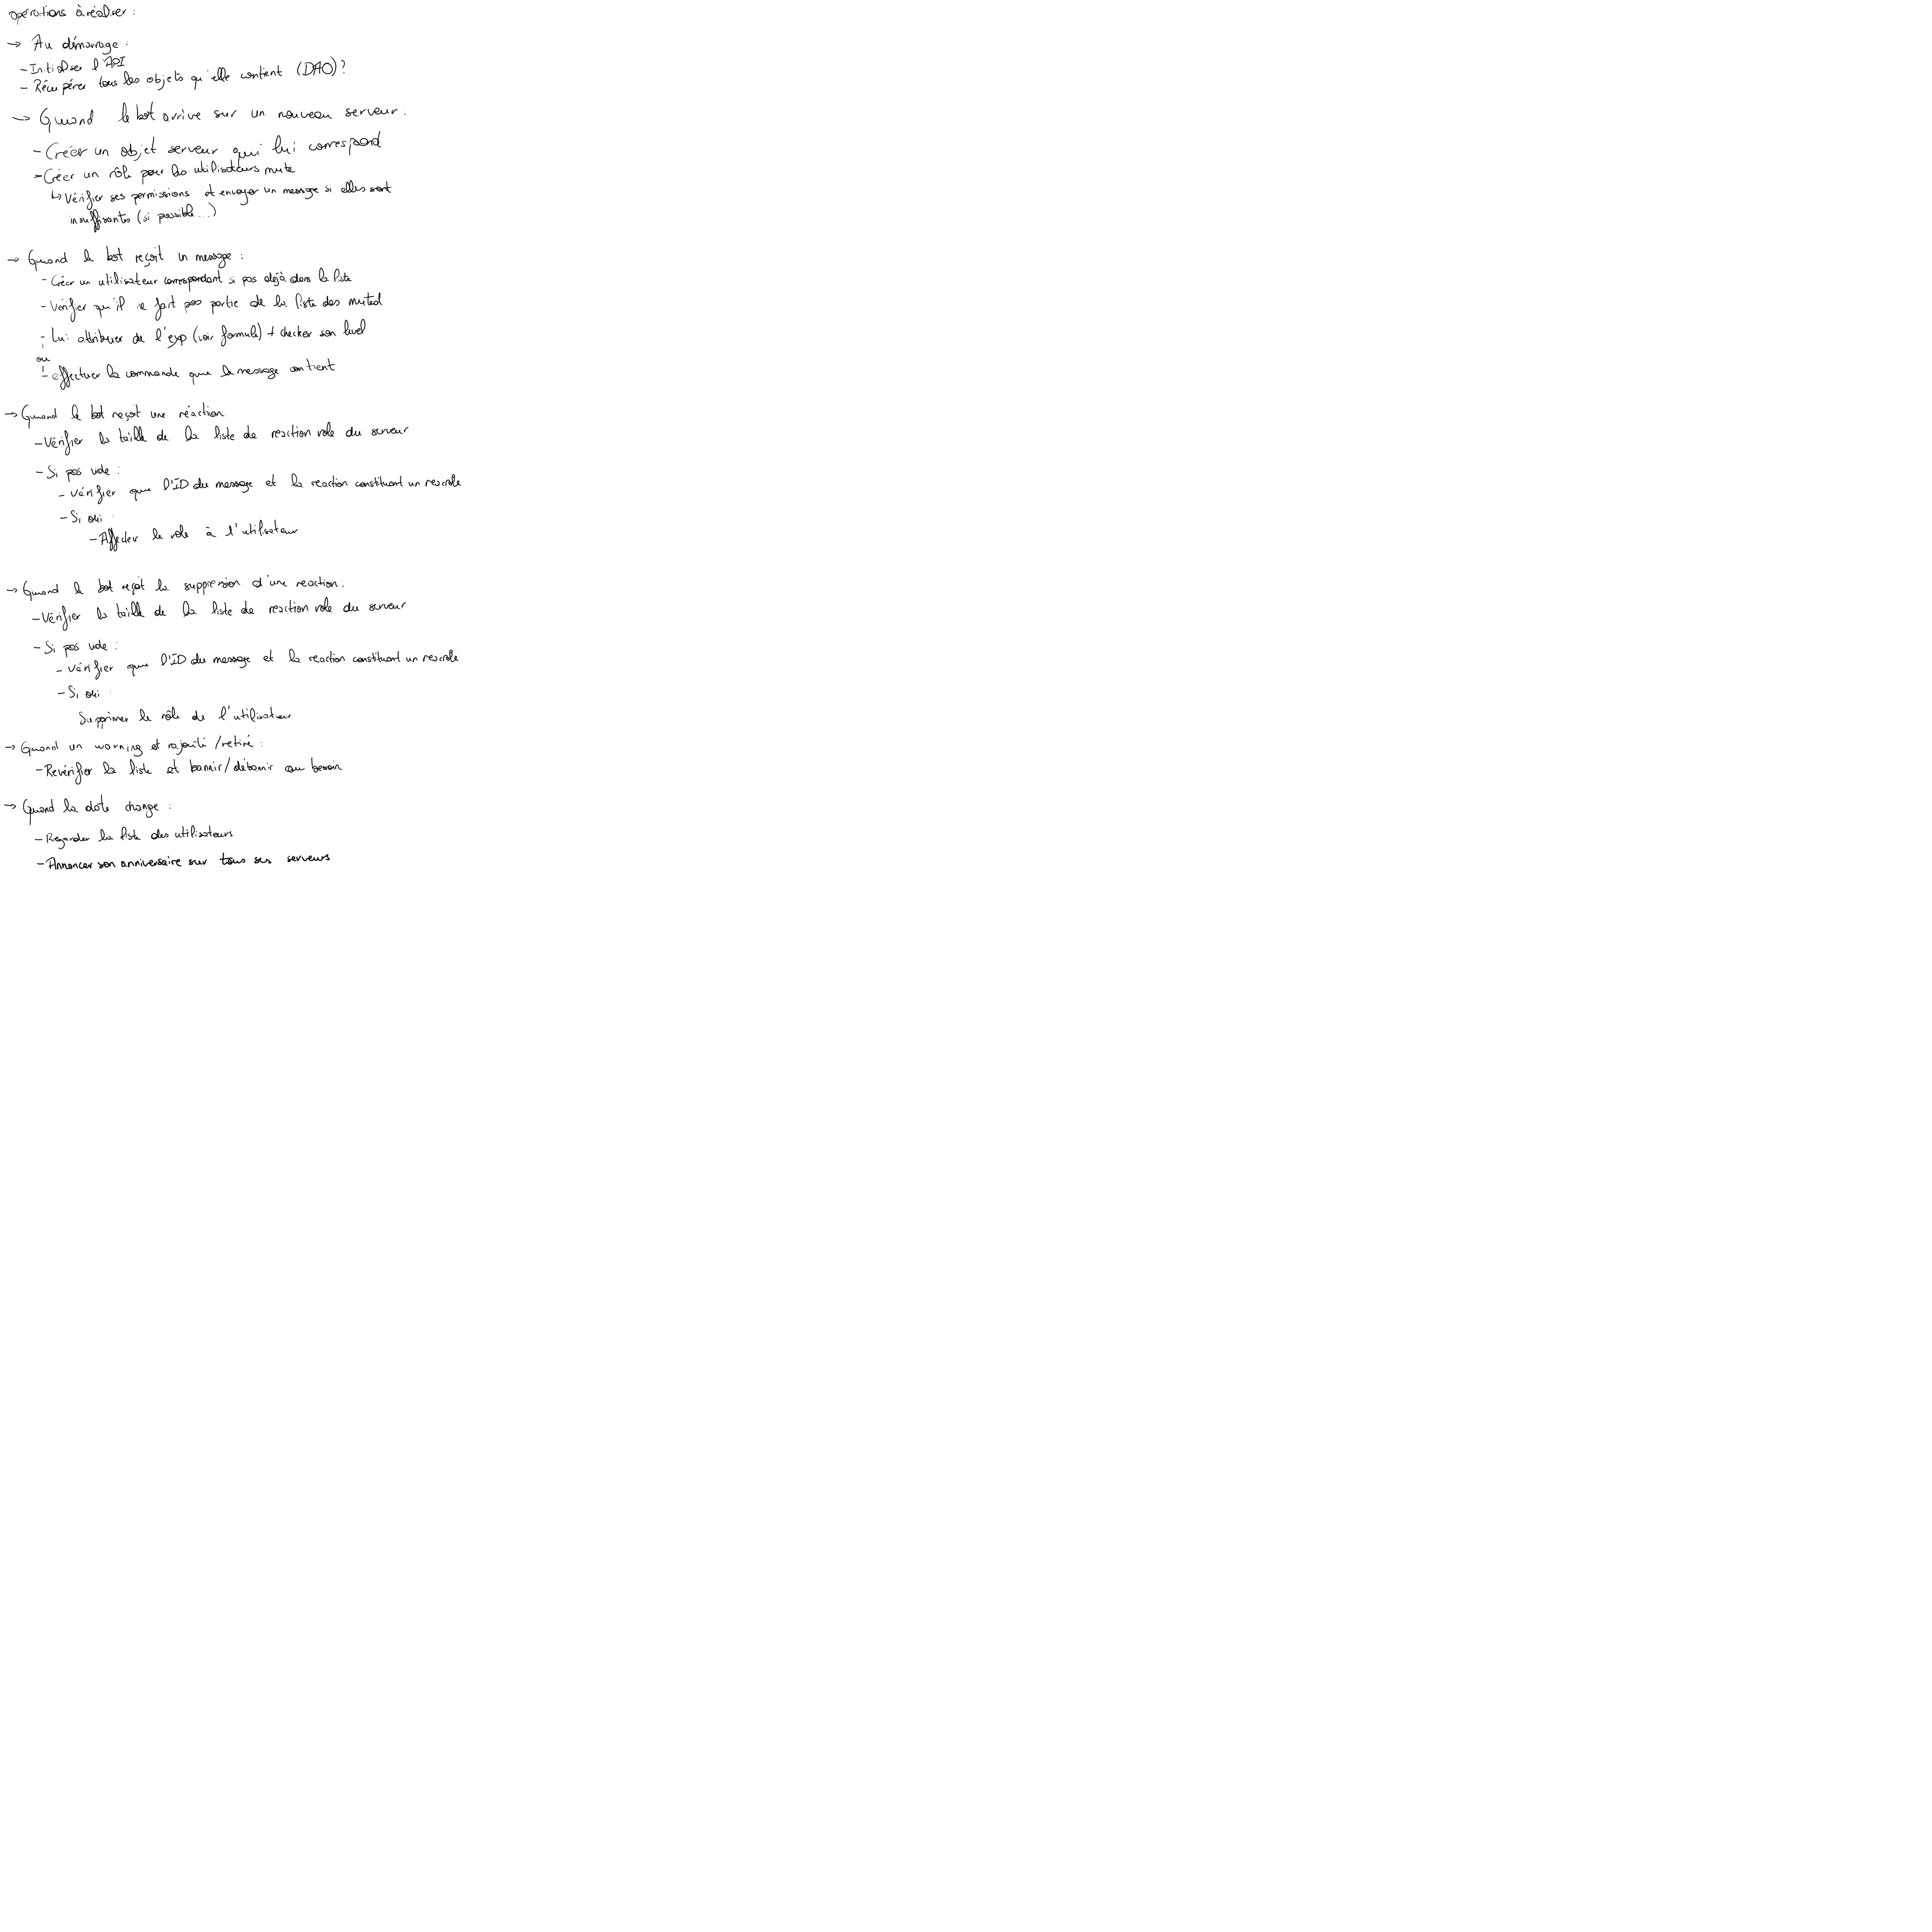 opérations à réaliser :
→ Au démarrage :
- Initialiser l'API
- Récupérer tous les objets qu'elle contient (DAO) ?
→ Quand le bot arrive sur un nouveau serveur :
- Créer un objet serveur qui lui correspond
- Créer un rôle pour les utilisateurs mute
↳ Vérifier ses permissions et envoyer un message si elles sont
insuffisantes (si possible...)
→ Quand le bot reçoit un message :
- Créer un utilisateur correspondant si pas déjà dans la liste
- Vérifier qu'il ne fait pas partie de la liste des muted
- Lui attribuer de l'exp (voir formule) + checker son level
ou
- effectuer la commande que le message contient
→ Quand le bot reçoit une réaction
- Vérifier la taille de la liste de reaction role du serveur
- Si pas vide :
- Vérifier que l'ID du message et la reaction constituent un reacrole
- Si oui :
- Affecter le role à l'utilisateur
→ Quand le bot reçoit la suppression d'une reaction :
- Vérifier la taille de la liste de reaction role du serveur
- Si pas vide :
- Vérifier que l'ID du message et la reaction constituent un reacrole
- Si oui :
Supprimer le rôle de l'utilisateur
→ Quand un warning et rajouté / retiré :
- Revérifier la liste et bannir / débannir au besoin
→ Quand la date change :
- Regarder la liste des utilisateurs
- Annoncer son anniversaire sur tous ses serveurs